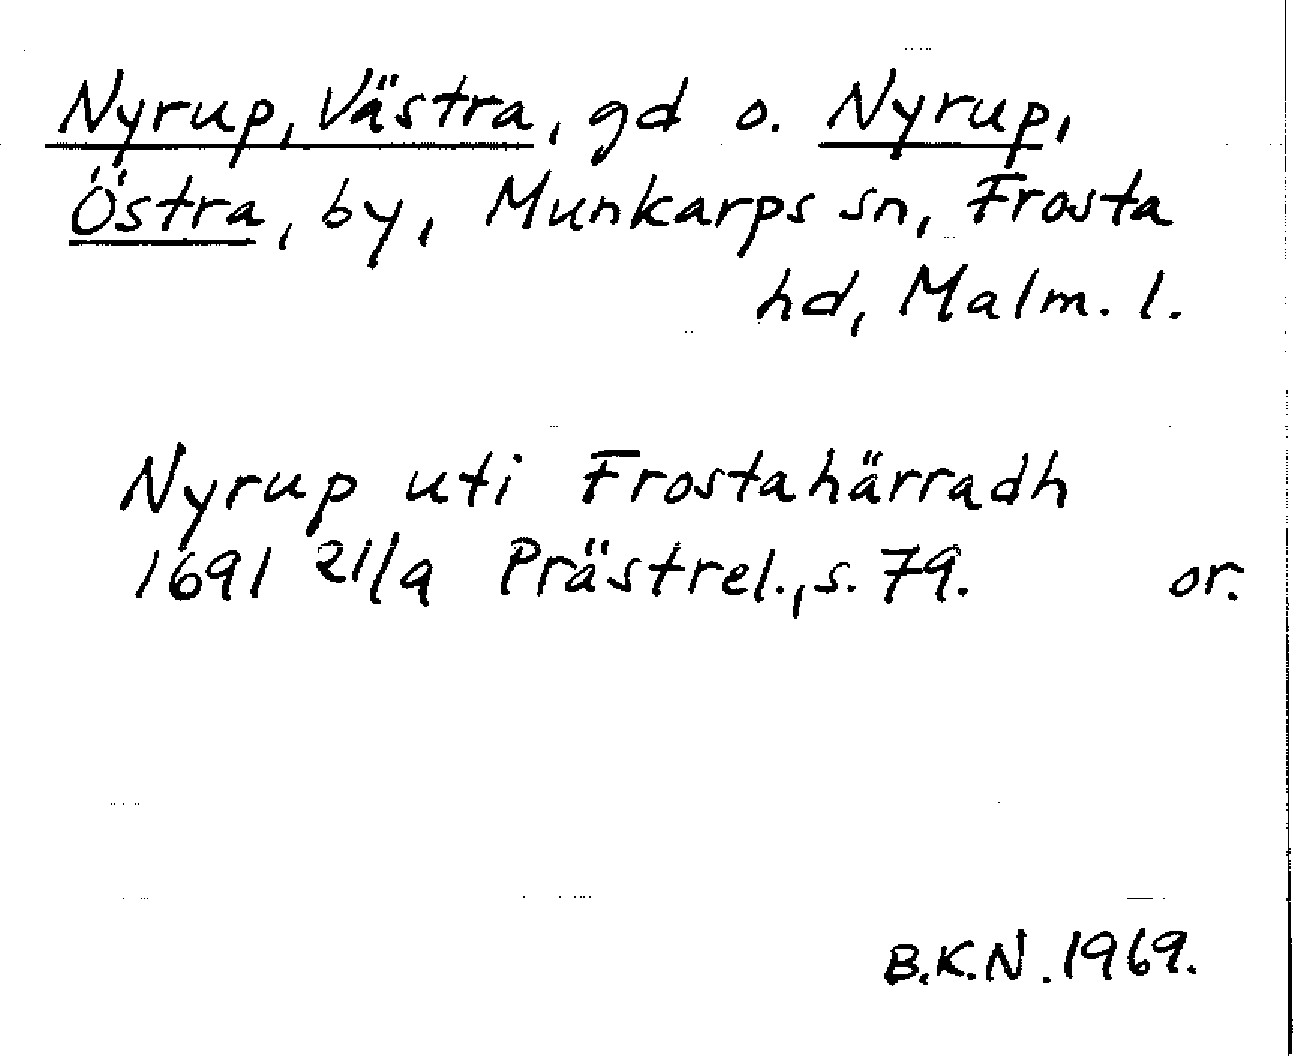 Nyrup, Västra, gd o. Nyrup,
Östra, by, Munkarps sn, Frosta
hd, Malm. l.
Nyrup uti Frostahärradh
1691 21/9 Prästrel., s. 79. or.
B.K.N. 1969.